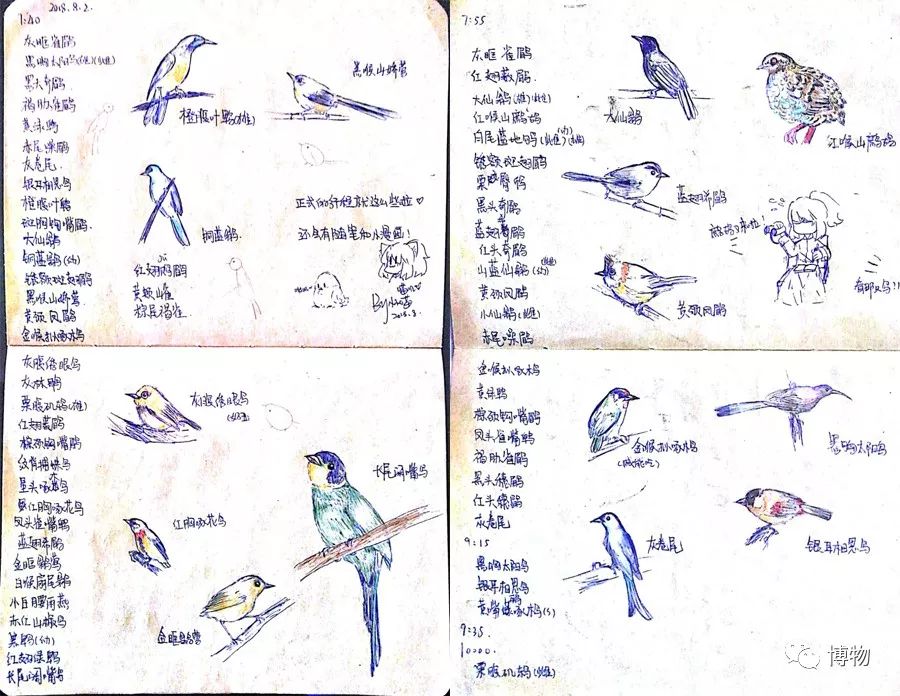 2018.8.2.
7:40
灰眶雀鹛
黑胸太阳鸟(雄)(雌)
黑头奇鹛
褐胁雀鹛
赤尾噪鹛
灰卷尾
银耳相思鸟
橙腹叶鹎
斑胸钩嘴鹛
大仙鹟
铜蓝鹟(幼)
锈额斑翅鹛
黑喉山鹪莺
黄颈凤鹛
金喉拟啄木鸟
橙腹叶鹎(雄)
黑喉山鹪莺
铜蓝鹟
红翅鵙鹛
黄颊山雀
棕尾褐雀
正式的纤
还会有脑
小漫画!
2018.8.
7:55
灰眶雀鹛
红翅薮鹛
大仙鹟(雄)(雌)
红喉山鹧鸪
白尾蓝地鸲(雌)(幼)
锈额斑翅鹛
栗臀䴓
黑头奇鹛
蓝翅希鹛
红头奇鹛
山蓝仙鹟(幼)
黄颈凤鹛
小仙鹟(雌)
赤尾噪鹛
大仙鹟
红喉山鹧鸪
蓝翅希鹛
黄颈凤鹛
有那只鸟!!
灰腹绣眼鸟
灰林鵖
栗腹矶鸫(雄)
红翅薮鹛
棕颈钩嘴鹛
纹背捕蛛鸟
星头啄木鸟
红胸啄花鸟
凤头雀嘴鹎
蓝翅希鹛
金眶鹟莺
白喉扇尾鹟
小白腰雨燕
赤红山椒鸟
黑鹎(幼)
红翅绿鹛
长尾阔嘴鸟
灰腹绣眼鸟
红胸啄花鸟
长尾阔嘴鸟
金眶鹟莺
金喉拟啄木鸟
棕颈钩嘴鹛
凤头雀嘴鹎
褐胁雀鹛
黑头穗鹛
红头穗鹛
灰卷尾
9:15
黑胸太阳鸟
银耳相思鸟
9:35
10000.
栗腹矶鸫(雌)
金喉拟啄木鸟
黑胸太阳鸟
灰卷尾
银耳相思鸟
博物